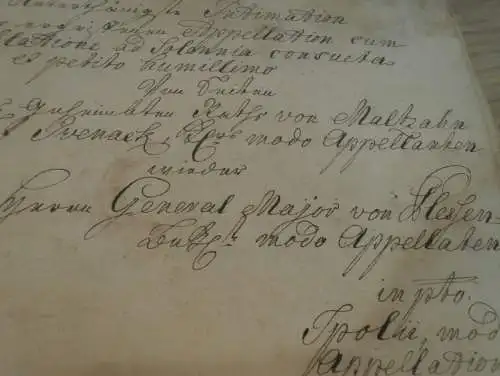 Intimation
Appellation cum
ad Solennia consueta
et petito humillimo
Von Seiten
Geheimbten Raths von Maltzahn
Ivenack modo Appellanten
wieder
Herrn General Major von Blessen-
modo Appellaten
in pto.
Spolii, mod
Appellation